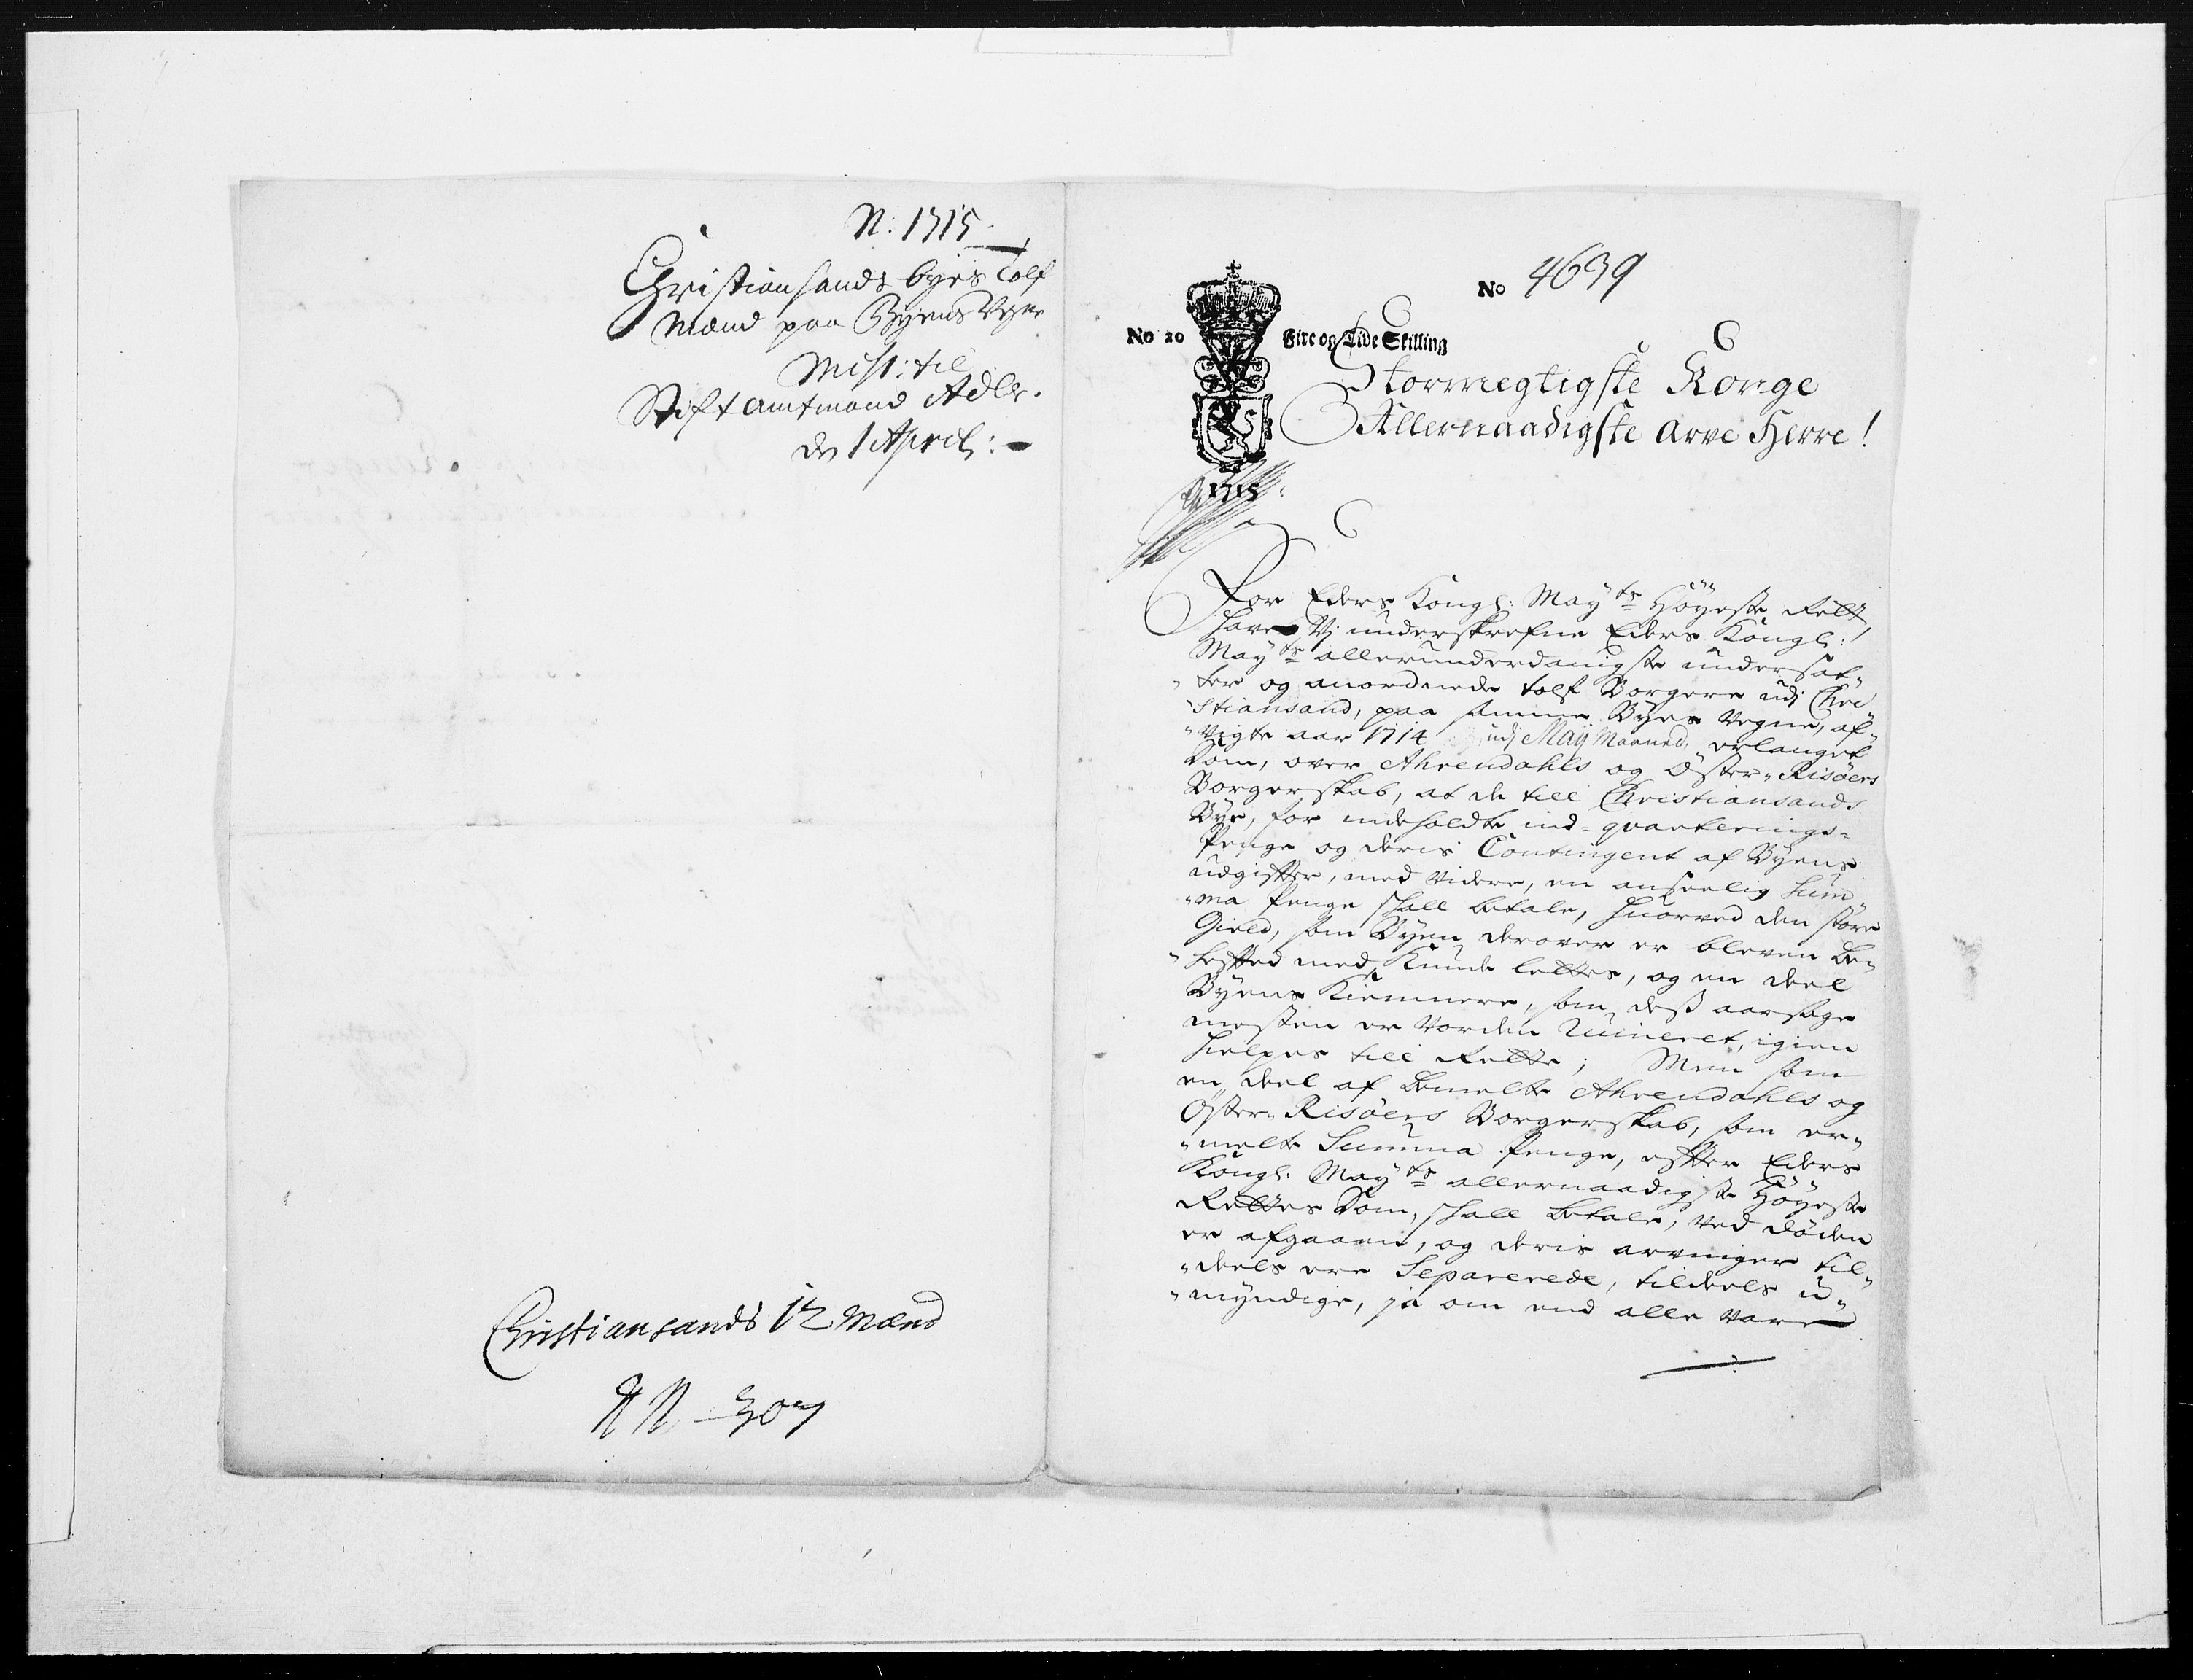 N: 1715.
Christiansands byes Tolf
Mænd paa Byens Vegne
Miss: til
Stiftamtmand Adler.
d 1 April:
Christiansands 12 Mænd
N N 307
No 4639
No 20 Fire og Tive Skilling
Stormegtigste Konge
Allernaadigste Arve Herre!
1715
For Eders Kongl: Mayts Höyeste Rett,
hafve Vj underskrefne Eders Kongl:
Mayts allerunderdanigste undersat-
ter og anordnede tolf Borgere udj Chri-
stiansand, paa samme Byes Vegne, af-
vigte aar 1714 udj Maij Maaned, erlanget
Dom, over Ahrendahls og Öster-Risöers
Borgerskab, at de till Christiansands
Bye, for indeholdte ind-qvarterings-
Penge og deris Contingent af Byens
udgiffter, med Videre, en anseelig Sum-
ma Penge skall betale, hvorved den store
Gield, som Byen derover er bleven be-
heffted med, kunde lettes, og en deel
Byens Kiemnere, som dess aarsage
mesten er vorden Ruineret, igien
hielpes till Rette; Men som
en deel af bemelte Ahrendahls og
Öster-Risöers Borgerskab, som er-
melte Summa Penge, effter Eders
Kongl: Mayts allernaadigste Höyeste
Rettes Dom, skall betale, ved döden
er afgaaen, og deris arvinger til-
deels ere Separerede, tildeels u-
myndige, ja om end alle vare